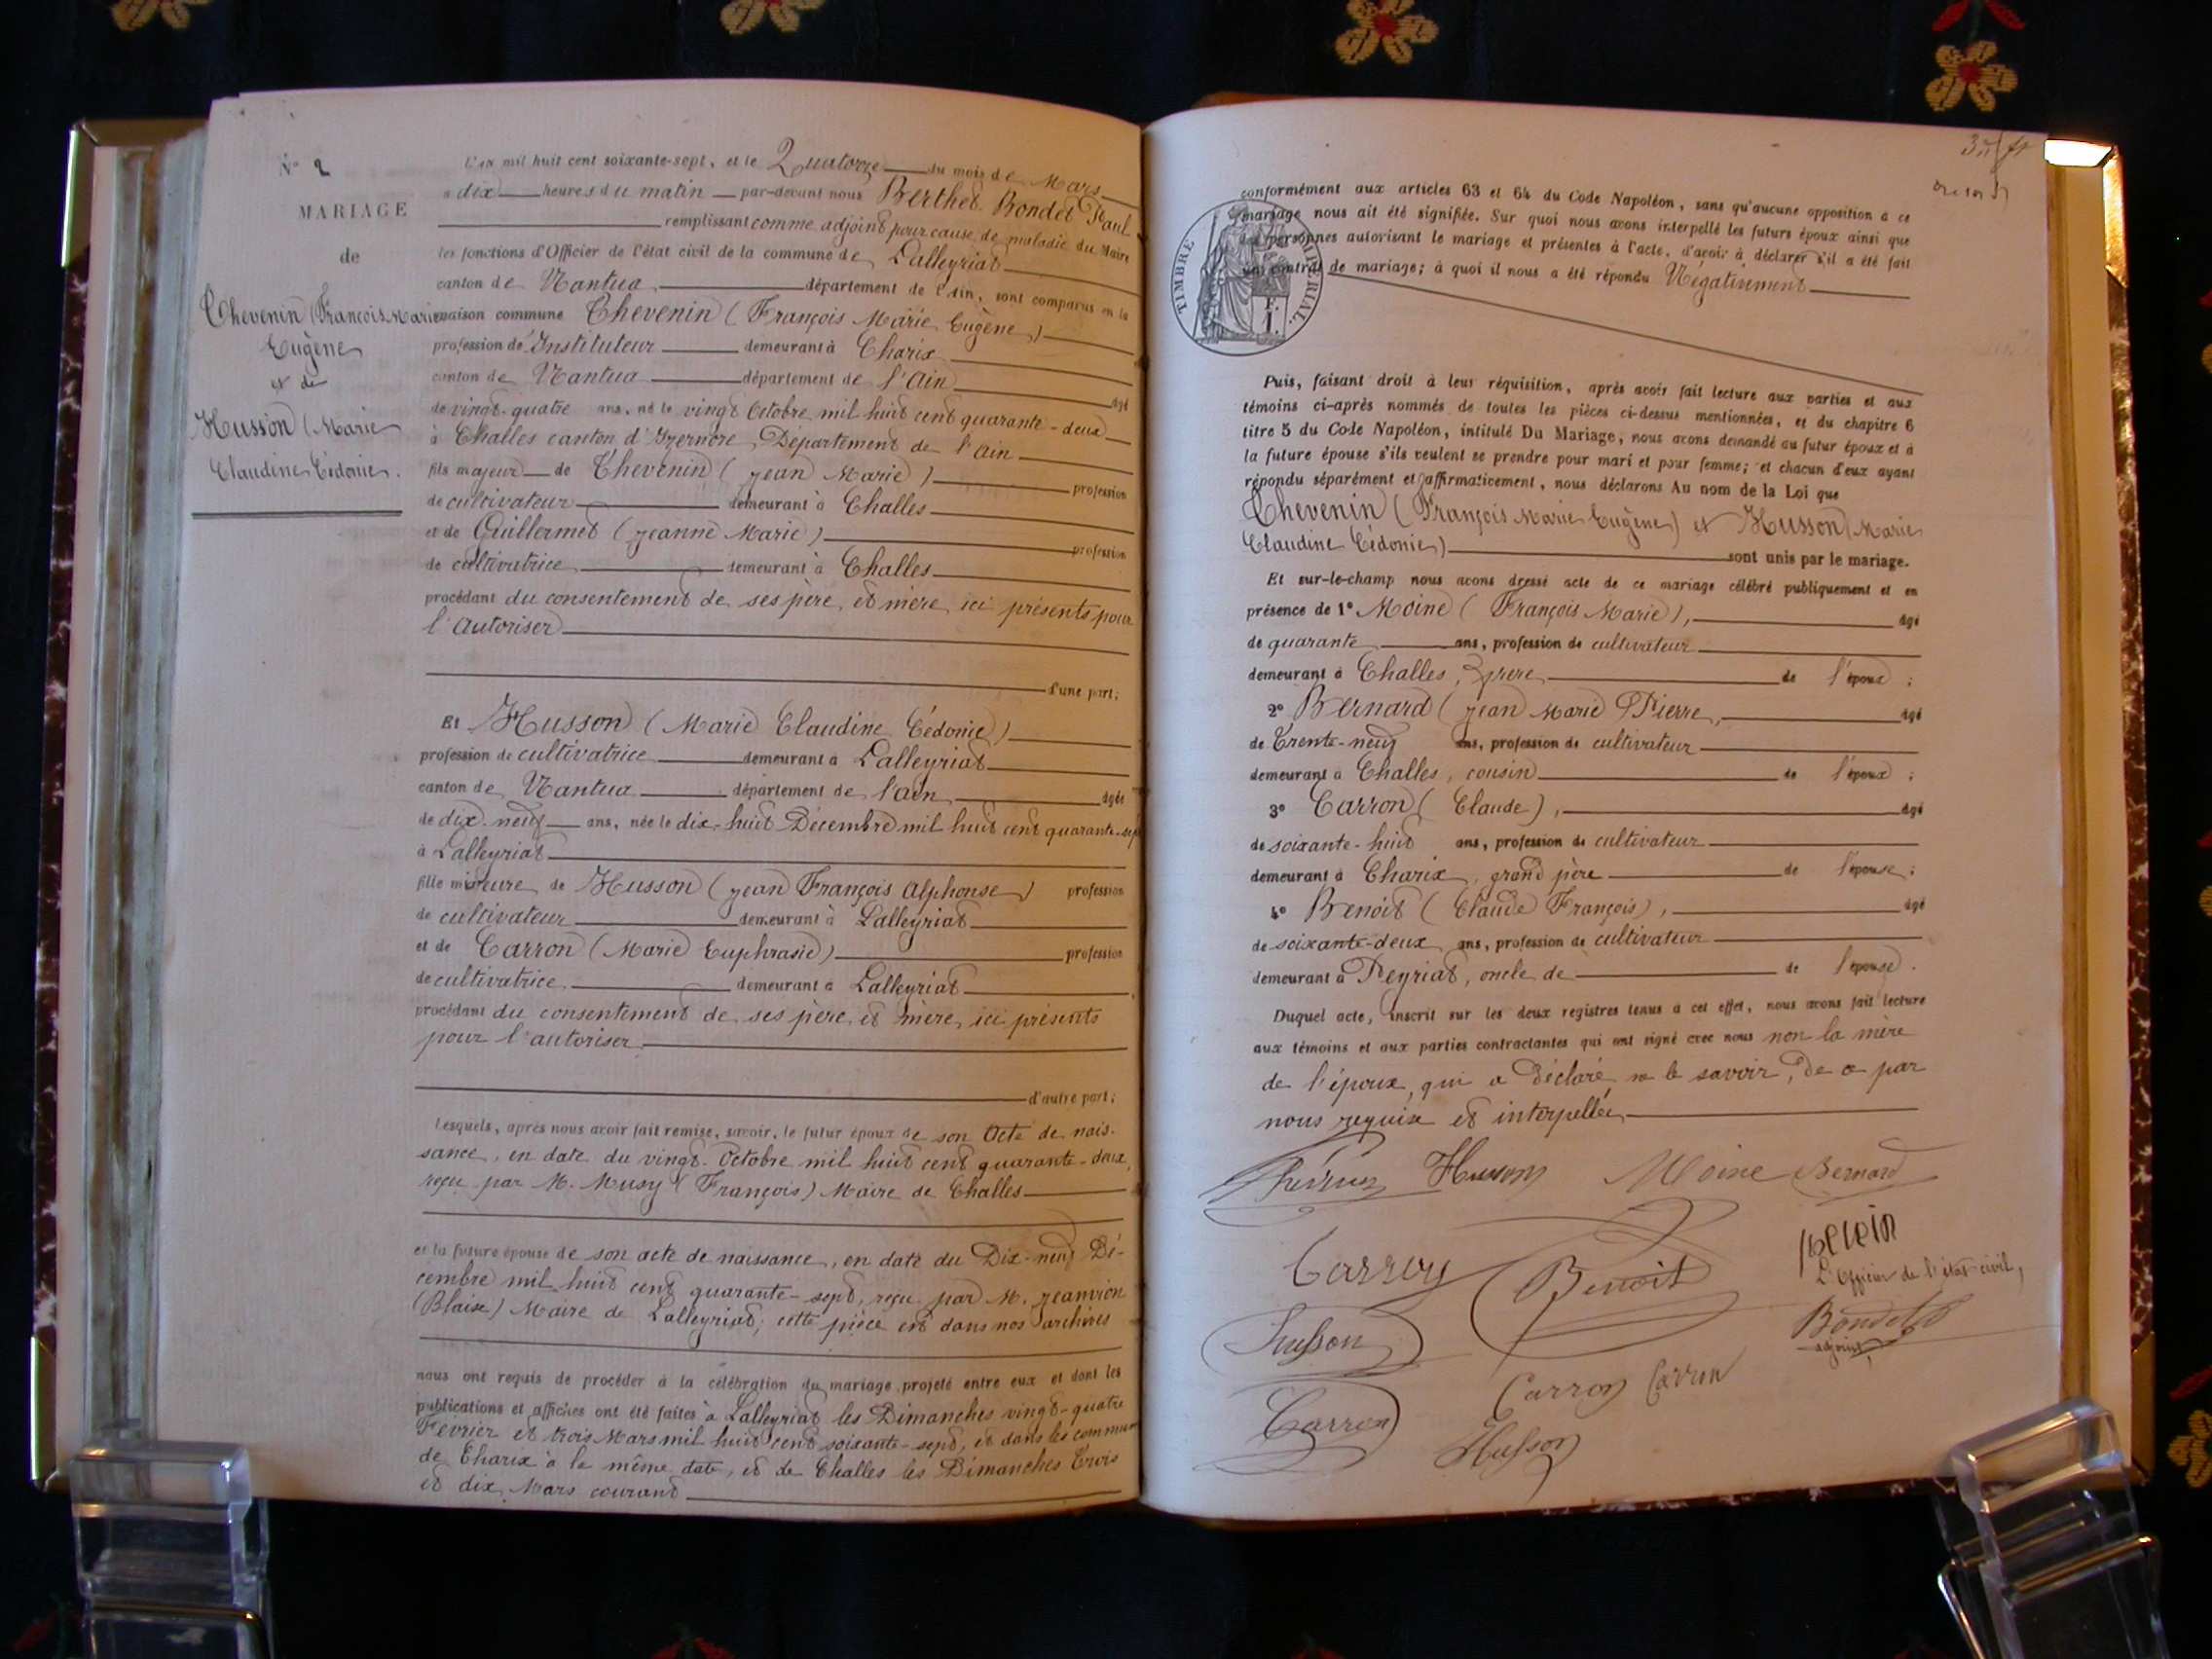 N° 2
MARIAGE
de
Chevenin (François Marie
Eugène
et de
Husson (Marie
Claudine Cédonie.
L'an mil huit cent soixante-sept, et le Quatorze du mois de Mars
à dix heures du matin par-devant nous Berthet-Bondet Paul
remplissant comme adjoint pour cause de maladie du Maire
les fonctions d'Officier de l'état civil de la commune de Lalleyriat
canton de Nantua département de l'Ain, sont comparus en la
maison commune Chevenin (François Marie Eugène)
profession de Instituteur demeurant à Charix
canton de Nantua département de l'Ain âgé
de vingt-quatre ans, né le vingt Octobre mil huit cent quarante-deux
à Challes canton d'Izernore, Département de l'Ain
fils majeur de Chevenin (Jean Marie) profession
de cultivateur demeurant à Challes
et de Guillermet (Jeanne Marie) profession
de cultivatrice demeurant à Challes
procédant du consentement de ses père et mère, ici présents pour
l'autoriser
d'une part;
Et Husson (Marie Claudine Cédonie)
profession de cultivatrice demeurant à Lalleyriat
canton de Nantua département de l'Ain âgée
de dix-neuf ans, née le dix-huit Décembre mil huit cent quarante-sept
à Lalleyriat
fille mineure de Husson (Jean François Alphonse) profession
de cultivateur demeurant à Lalleyriat
et de Carron (Marie Euphrasie) profession
de cultivatrice demeurant à Lalleyriat
procédant du consentement de ses père et mère, ici présents
pour l'autoriser
d'autre part;
Lesquels, après nous avoir fait remise, savoir, le futur époux de son Acte de nais-
sance, en date du vingt-Octobre mil huit cent quarante-deux,
reçu par M. Musy (François) Maire de Challes
et la future épouse de son acte de naissance, en date du Dix-neuf Dé-
cembre mil huit cent quarante-sept, reçu par M. Jeanvion
(Blaise) Maire de Lalleyriat; cette pièce est dans nos archives
nous ont requis de procéder à la célébration du mariage projeté entre eux et dont les
publications et affiches ont été faites à Lalleyriat les Dimanches vingt-quatre
Février et trois Mars mil huit cent soixante-sept, et dans les communes
de Charix à la même date, et de Challes les Dimanches Trois
et dix Mars courant
conformément aux articles 63 et 64 du Code Napoléon, sans qu'aucune opposition à ce
mariage nous ait été signifiée. Sur quoi nous avons interpellé les futurs époux ainsi que
les personnes autorisant le mariage et présentes à l'acte, d'avoir à déclarer s'il a été fait
un contrat de mariage; à quoi il nous a été répondu Négativement
TIMBRE IMPERIAL.
1 F.
Puis, faisant droit à leur réquisition, après avoir fait lecture aux parties et aux
témoins ci-après nommés de toutes les pièces ci-dessus mentionnées, et du chapitre 6
titre 5 du Code Napoléon, intitulé Du Mariage, nous avons demandé au futur époux et à
la future épouse s'ils veulent se prendre pour mari et pour femme; et chacun d'eux ayant
répondu séparément et affirmativement, nous déclarons Au nom de la Loi que
Chevenin (François Marie Eugène) et Husson (Marie
Claudine Cédonie) sont unis par le mariage.
Et sur-le-champ nous avons dressé acte de ce mariage célébré publiquement et en
présence de 1° Moine (François Marie), âgé
de quarante ans, profession de cultivateur
demeurant à Challes, de l'époux ;
2° Bernard (Jean Marie Pierre, âgé
de Trente-neuf ans, profession de cultivateur
demeurant à Challes, cousin de l'époux ;
3° Carron (Claude), âgé
de soixante-huit ans, profession de cultivateur
demeurant à Charix, grand père de l'épouse ;
4° Benoit (Claude François), âgé
de soixante-deux ans, profession de cultivateur
demeurant à Peyriat, oncle de de l'épouse.
Duquel acte, inscrit sur les deux registres tenus à cet effet, nous avons fait lecture
aux témoins et aux parties contractantes qui ont signé avec nous non la mère
de l'époux, qui a déclaré ne le savoir, de ce par
nous requise et interpellée
Husson Moine Bernard
Carron Benoit
L'officier de l'état-civil,
Husson Bondet
adjoint
Carron Carron Carron
Husson